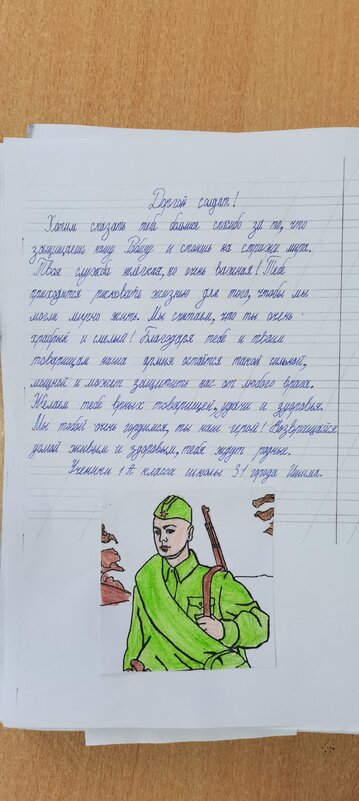 Дорогой солдат!
Хотим сказать тебе большое спасибо за то, что
защищаешь нашу и стоишь на страже мира.
Твоя служба нелёгкая, но очень важная! Тебе
приходится рисковать жизнью для того, чтобы мы
могли мирно жить. Мы считаем, что ты очень
храбрый и смелый! Благодаря тебе и твоим
товарищам наша армия остаётся такой сильной,
мощной и может защитить нас от любого врага.
Желаем тебе верных товарищей, удачи и здоровья.
Мы тобой очень гордимся, ты наш герой! Возвращайся
домой живым и здоровым, тебя ждут родные.
Ученики 1 А класса школы 31 города Ишима.